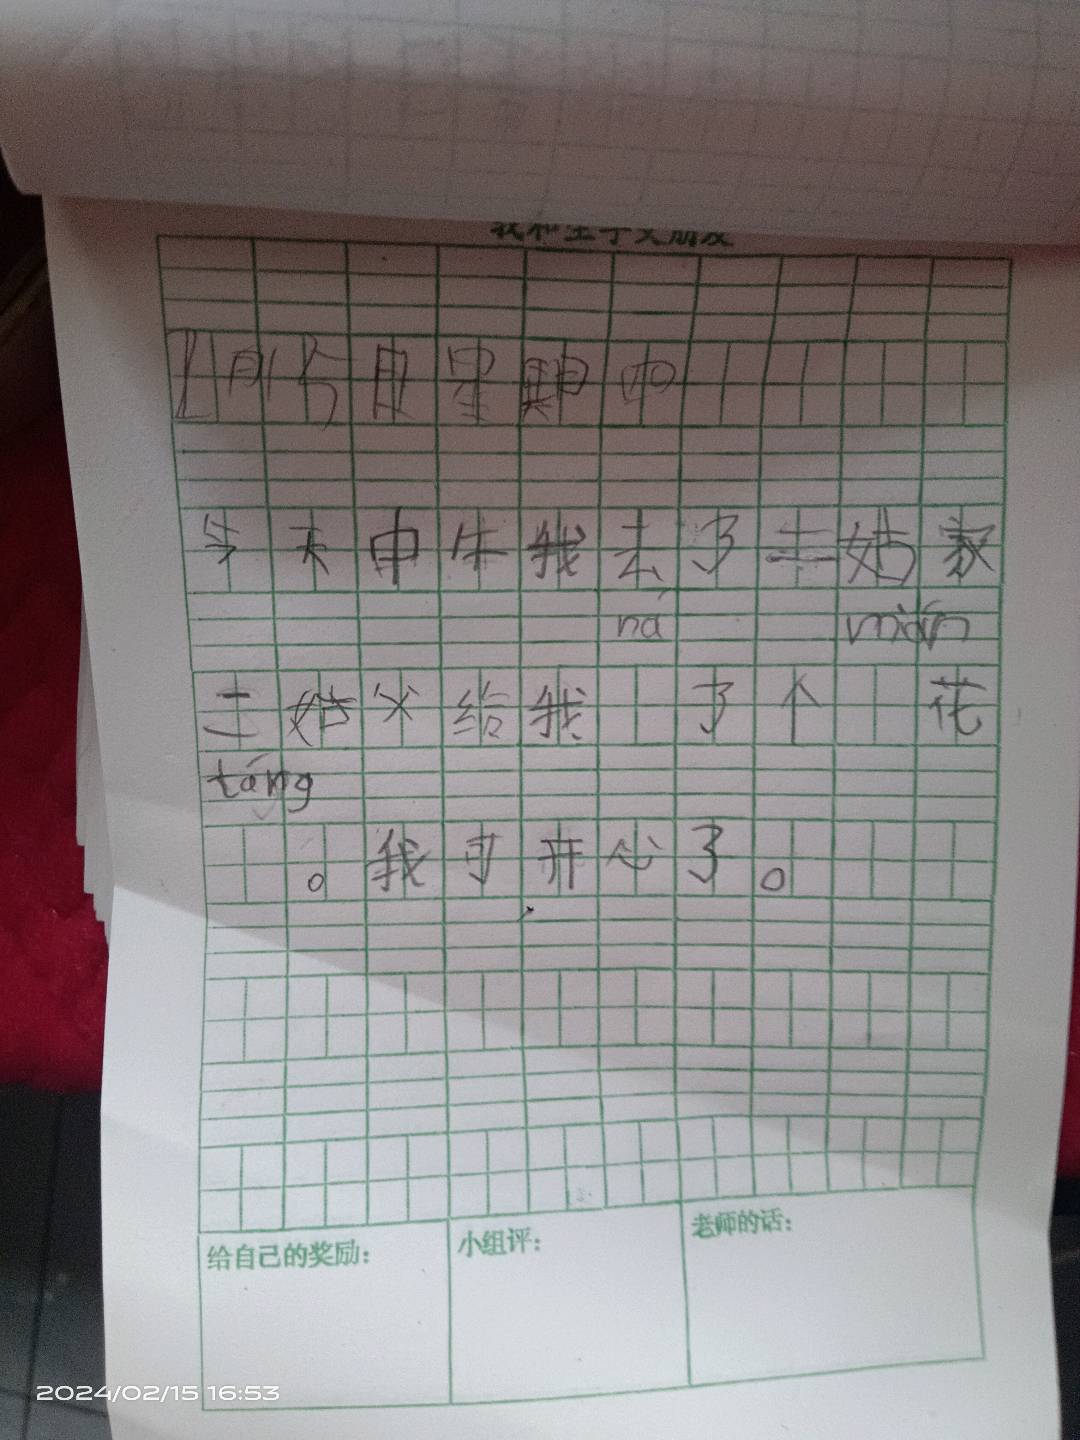 我和生字交朋友
2月15日星期四
今天中午我去了三姑家
ná mián
三姑父给我 了个 花
táng
。我可开心了。
给自己的奖励：
小组评：
老师的话：
2024/02/15 16:53